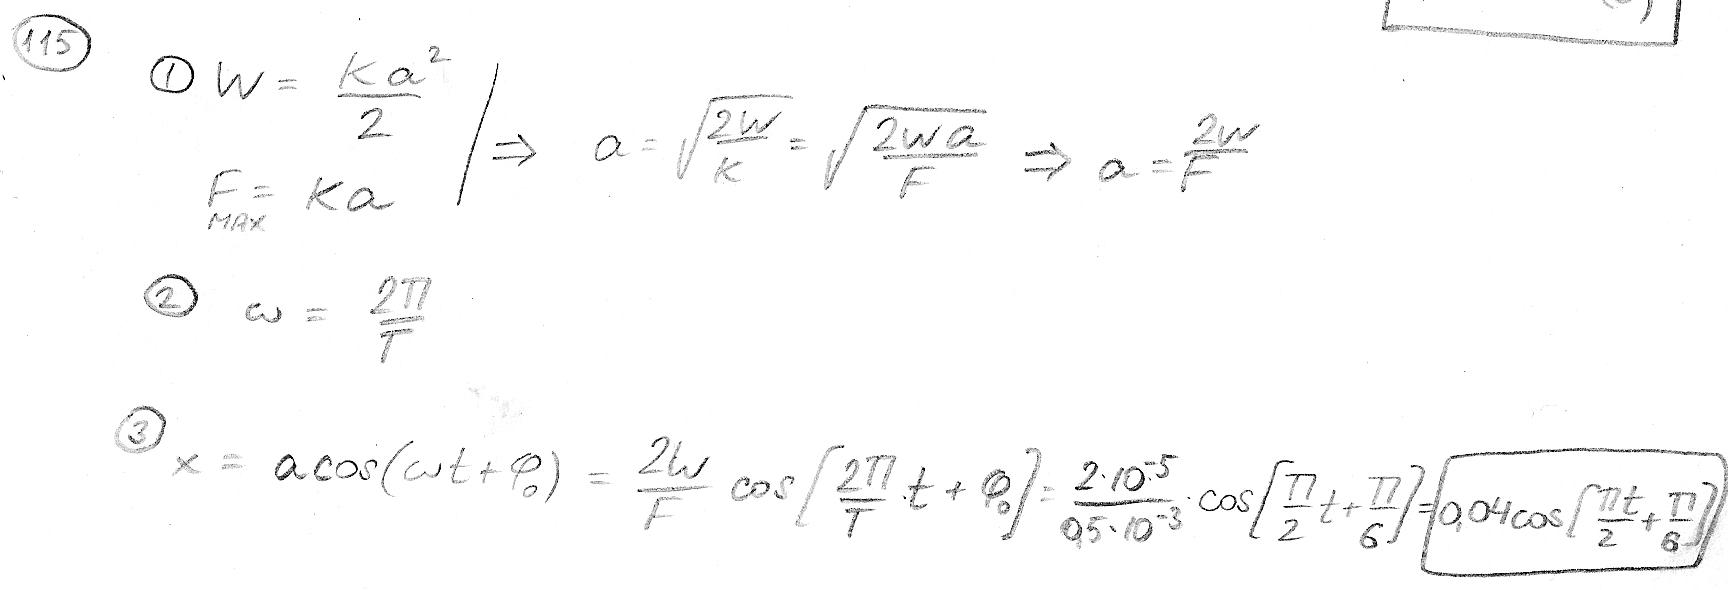 115
① W = Ka²/2 | ⇒ a = √(2W/K) = √(2Wa/F) ⇒ a = 2W/F
F_MAX = Ka
② ω = 2π/T
③ x = a cos(ωt + φ₀) = 2W/F cos[2π/T · t + φ₀] = 2·10⁻⁵/0,5·10⁻³ · cos[π/2 t + π/6] = 0,04 cos[πt/2 + π/6]